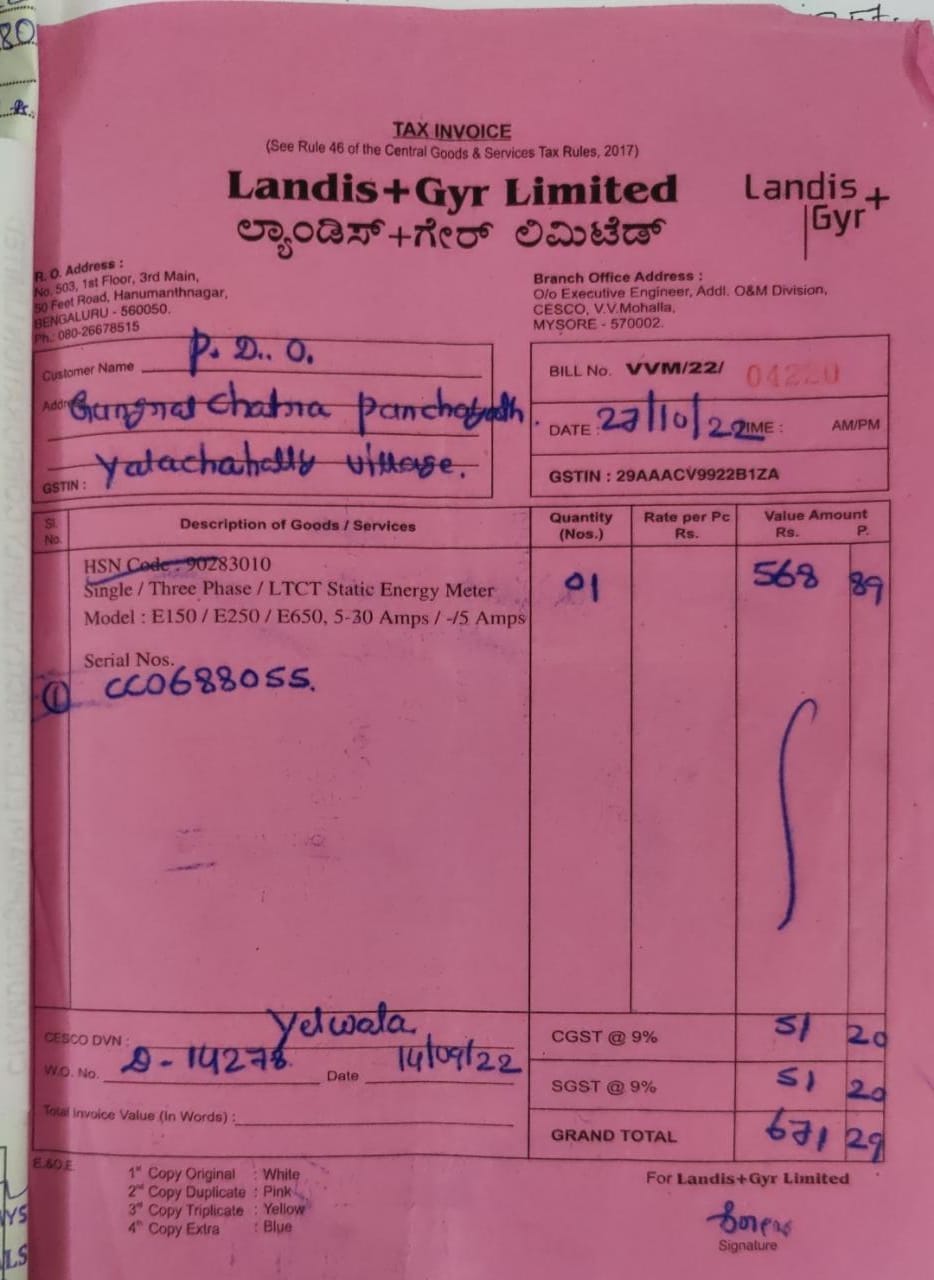 80
TAX INVOICE
(See Rule 46 of the Central Goods & Services Tax Rules, 2017)
Landis+Gyr Limited
ಲ್ಯಾಂಡಿಸ್+ಗೇರ್ ಲಿಮಿಟೆಡ್
Landis+
Gyr
R. O. Address :
No. 503, 1st Floor, 3rd Main,
50 Feet Road, Hanumanthnagar,
BENGALURU - 560050.
Ph.: 080-26678515
Branch Office Address :
O/o Executive Engineer, Addl. O&M Division,
CESCO, V.V.Mohalla,
MYSORE - 570002.
Customer Name P. D. O.
Panchayath
Yalachahally village.
GSTIN :
BILL No. VVM/22/ 04220
DATE : 27/10/22 TIME : AM/PM
GSTIN : 29AAACV9922B1ZA
Sl. No. Description of Goods / Services Quantity (Nos.) Rate per Pc Rs. Value Amount Rs. P.
HSN Code : 90283010
Single / Three Phase / LTCT Static Energy Meter 01 568 89
Model : E150 / E250 / E650, 5-30 Amps / -/5 Amps
Serial Nos.
① CC0688055.
CESCO DVN : Yelwala
W.O. No. D-14278 Date 14/09/22
Total Invoice Value (In Words) :
CGST @ 9% 51 20
SGST @ 9% 51 20
GRAND TOTAL 671 29
E.&O.E.
1st Copy Original : White
2nd Copy Duplicate : Pink
3rd Copy Triplicate : Yellow
4th Copy Extra : Blue
For Landis+Gyr Limited
Signature
YS
LS